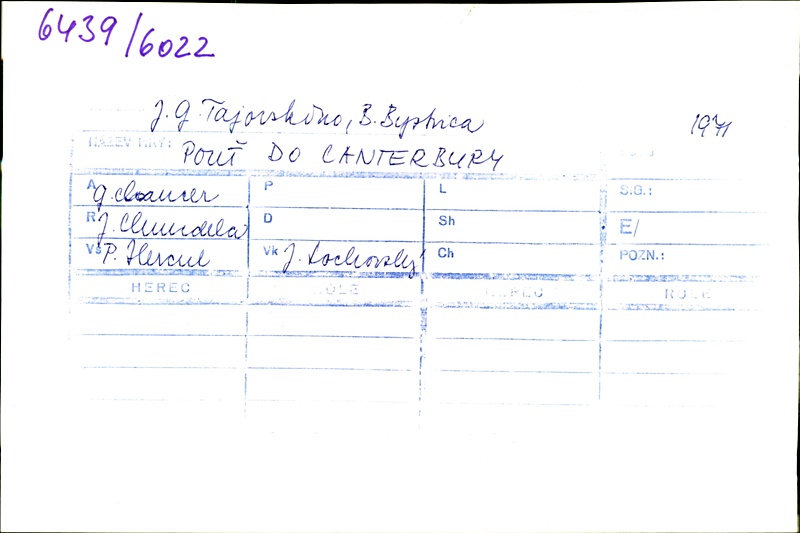 6439/6022
J. G. Tajovského, B. Bystrica 1971
NÁZEV HRY: POUŤ DO CANTERBURY
A G. Chaucer P L S.G.:
R J. Chundela D Sh E/
Vs P. Hercul Vk J. Lochovský Ch POZN.:
HEREC ROLE HEREC ROLE